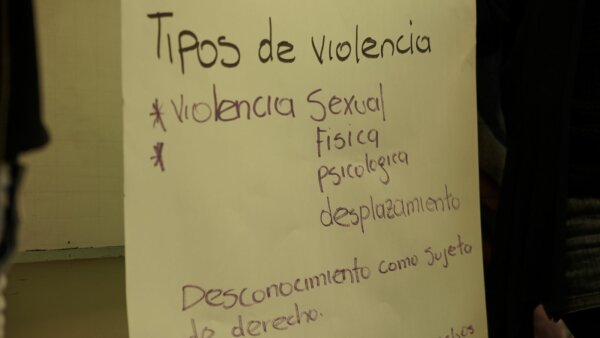 Tipos de violencia
* violencia sexual
* Fisica
psicologica
desplazamiento
Desconocimiento como sujeto
de derecho.